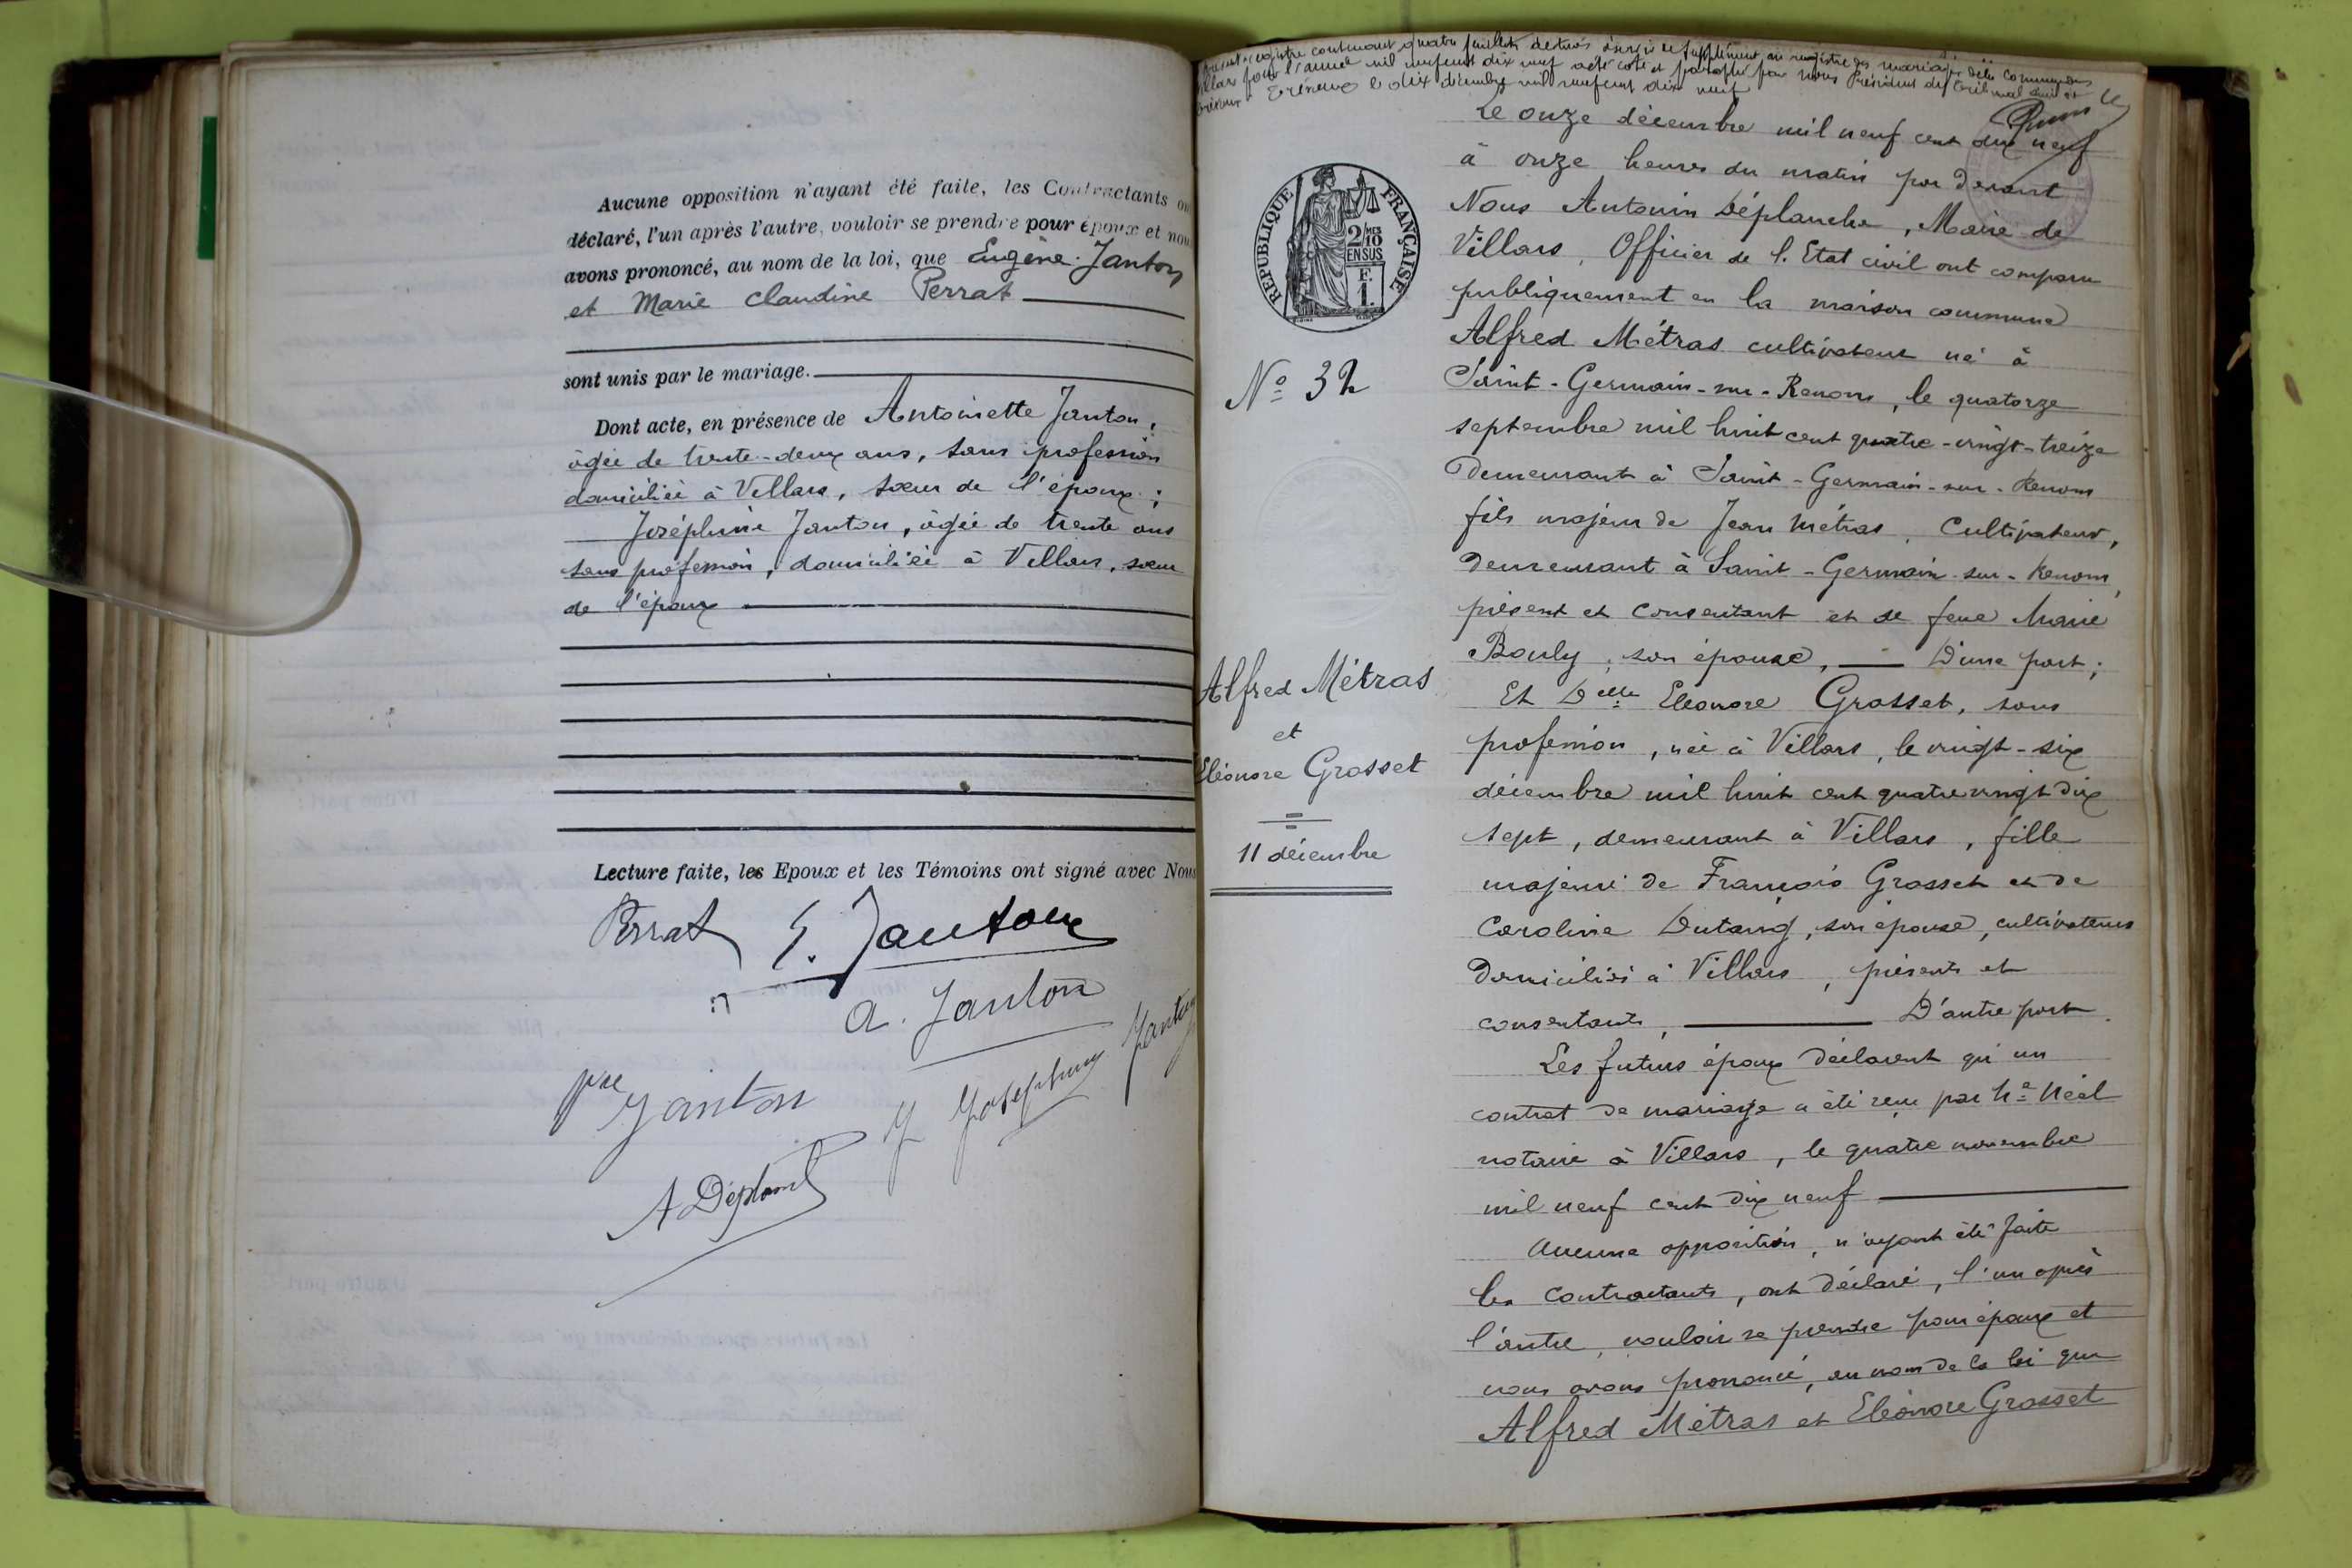 Aucune opposition n'ayant été faite, les Contractants on
déclaré, l'un après l'autre, vouloir se prendre pour époux et nou
avons prononcé, au nom de la loi, que Eugène Janton
et Marie Claudine Perrat
sont unis par le mariage.
Dont acte, en présence de Antoinette Janton,
âgée de trente-deux ans, sans profession
domiciliée à Villars, sœur de l'époux;
Joséphine Janton, âgée de trente ans
sans profession, domiciliée à Villars, sœur
de l'époux
Lecture faite, les Epoux et les Témoins ont signé avec Nous
Perrat E. Janton
A. Janton
Janton
J Josephine Janton
A Déplanche
registre contenant quatre feuillets destinés à servir de supplément au registre des mariages de la commune de
Villars pour l'année mil neuf cent dix neuf a été coté et paraphé par nous Président du Tribunal civil de
Trévoux Trévoux le dix décembre mil neuf cent dix neuf
RÉPUBLIQUE FRANÇAISE
2/10 MES
EN SUS
F.
1.
Nº 32
Alfred Métras
et
Eléonore Grosset
11 décembre
Le onze décembre mil neuf cent dix neuf
à onze heures du matin par devant
Nous Antonin Déplanche, Maire de
Villars, Officier de l'Etat civil ont comparu
publiquement en la maison commune
Alfred Métras cultivateur né à
Saint-Germain-sur-Renom, le quatorze
septembre mil huit cent quatre-vingt-treize
demeurant à Saint-Germain-sur-Renom
fils majeur de Jean Métras, Cultivateur,
demeurant à Saint-Germain-sur-Renom,
présent et consentant et de feue Marie
Bouly, son épouse, D'une part;
Et Delle Eléonore Grosset, sans
profession, née à Villars, le vingt-six
décembre mil huit cent quatre vingt dix
sept, demeurant à Villars, fille
majeure de François Grosset et de
Caroline Dutang, son épouse, cultivateurs
domiciliés à Villars, présents et
consentants, D'autre part.
Les futurs époux déclarent qu'un
contrat de mariage a été reçu par Me Néel
notaire à Villars, le quatre novembre
mil neuf cent dix neuf
Aucune opposition, n'ayant été faite
les contractants, ont déclaré, l'un après
l'autre, vouloir se prendre pour époux et
nous avons prononcé, au nom de la loi que
Alfred Métras et Eléonore Grosset